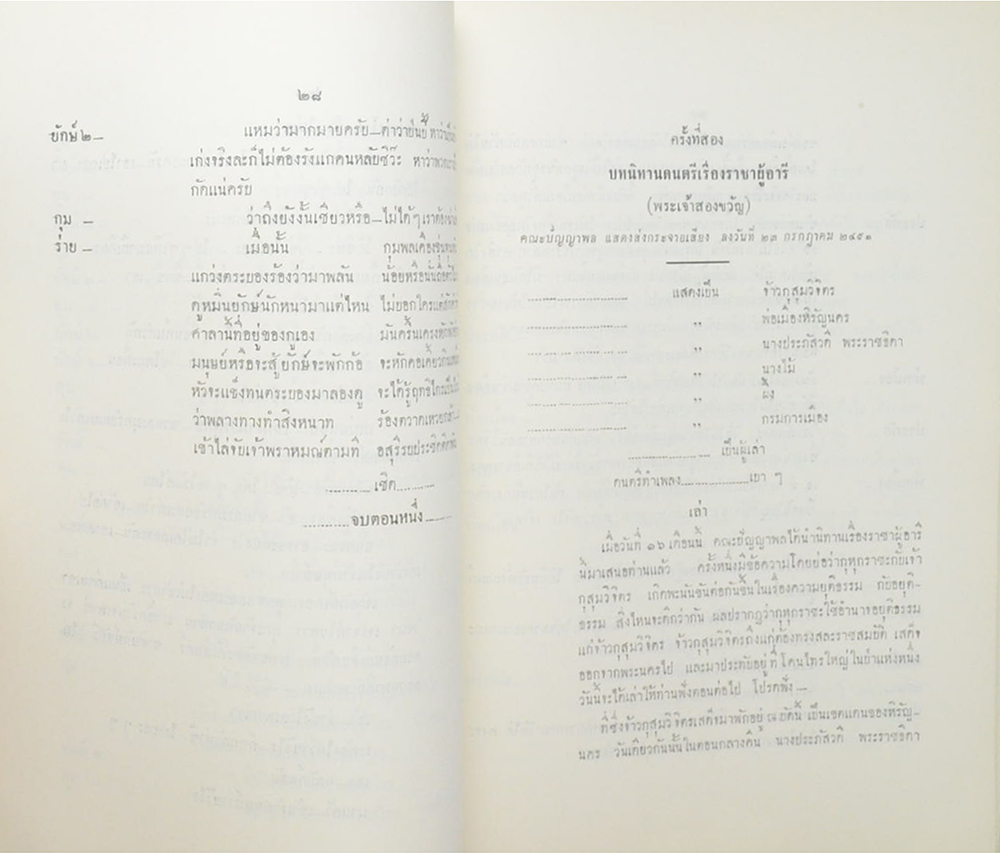 ๒๘
ยักษ์ ๒ — แหมว่ามากมายครับ — ด่าว่าป่นปี้
เก่งจริงละก็ไม่ต้องรังแกคนหลับซิวะ
กัดแน่ครับ
กุม — ว่าถึงยังงั้นเชียวหรือ — ไม่ได้ ๆ เราต้อง
ร่าย — เมื่อนั้น กุมพล
แกว่งตระบองร้องว่ามาพลัน น้อยหรือนั่น
ดูหมิ่นยักษ์นักหนามาแต่ไหน ไม่บอกใคร
ศาลานี้ที่อยู่ของกูเอง มัน
มนุษย์หรือจะสู้ยักษ์จะพักก้อ จะหักคอเคี้ยวกิน
หัวจะแข็งทนตระบองมาลองดู จะได้รู้ฤทธิไกร
ว่าพลางทางทำสิงหนาท ร้องตวาด
เข้าไล่จับเจ้าพราหมณ์ตามที อสุรี
..........เชิด..........
..........จบตอนหนึ่ง......
ครั้งที่สอง
บทนิทานดนตรีเรื่องราชาผู้อารี
(พระเจ้าสองขวัญ)
คณะปัญญาพล แสดงส่งกระจายเสียง ลงวันที่ ๒๓ กรกฎาคม ๒๔๙๑
........................ แสดงเป็น จ้าวกุสุมวิจิตร
........................ ,, พ่อเมืองหิรัญนคร
........................ ,, นางประภัสวดี พระราชธิดา
........................ ,, นางไม้
........................ ,, ผึ้ง
........................ ,, กรมการเมือง
........................ เป็นผู้เล่า
ดนตรีทำเพลง....................เบา ๆ
เล่า
เมื่อวันที่ ๑๖ เดือนนี้ คณะปัญญาพลได้นำนิทานเรื่องราชาผู้อารี
นี้มาเสนอท่านแล้ว ครั้งหนึ่งมีข้อความโดยย่อว่ากุหุกราชะกับเจ้า
กุสุมวิจิตร เกิดพะนันขันต่อกันขึ้นในเรื่องความยุติธรรม กับอยุติ-
ธรรม สิ่งไหนจะดีกว่ากัน ผลปรากฏว่ากุหุกราชะใช้อำนาจอยุติธรรม
แก่จ้าวกุสุมวิจิตร จ้าวกุสุมวิจิตรถึงแก่ต้องทรงสละราชสมบัติ เสด็จ
ออกจากพระนครไป และมาประทับอยู่ที่โคนไทรใหญ่ในป่าแห่งหนึ่ง
วันนี้จะได้เล่าให้ท่านฟังตอนต่อไป โปรดฟัง —
ที่ซึ่งจ้าวกุสุมวิจิตรเสด็จมาพักอยู่ ณ บัดนี้ เป็นเขตแดนของหิรัญ-
นคร วันเดียวกันนั้นในตอนกลางคืน นางประภัสวดี พระราชธิดา